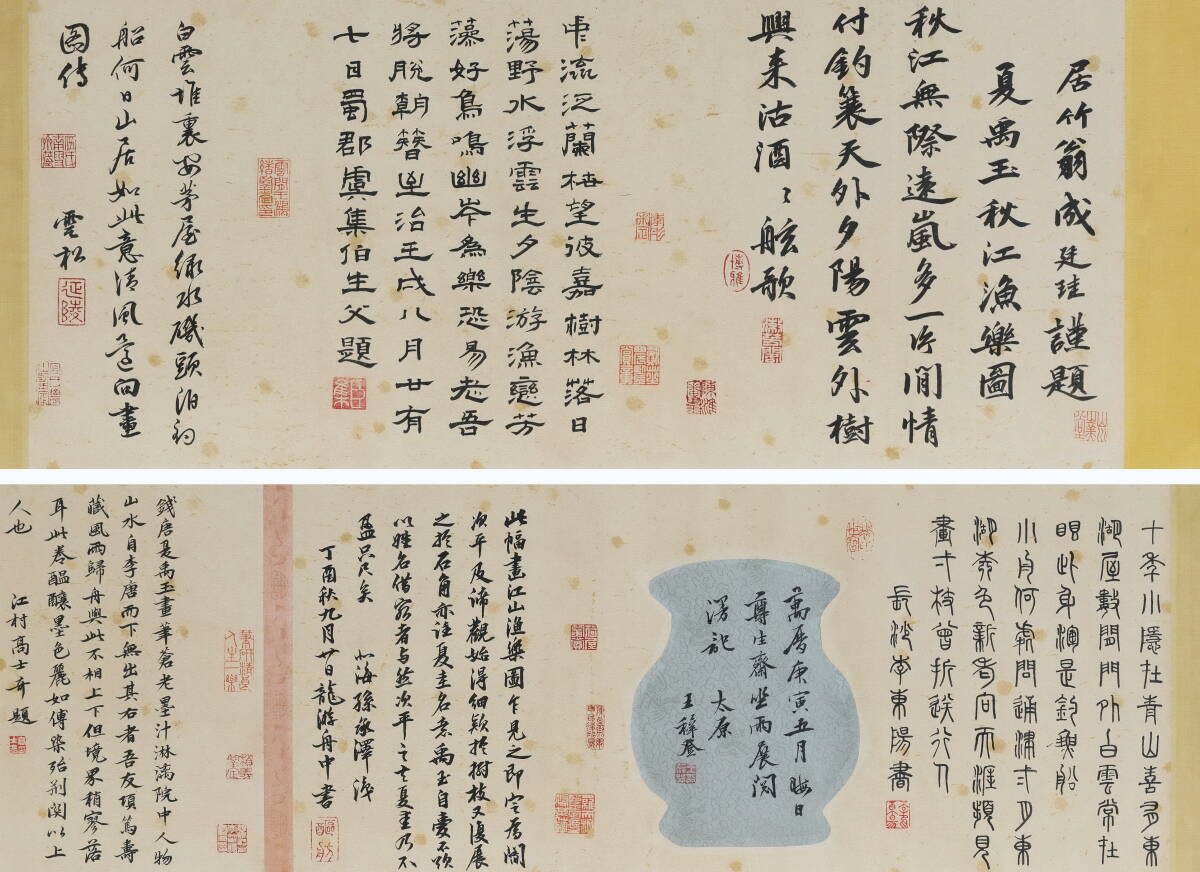 居竹翁成廷珪謹題
夏禹玉秋江漁樂圖
秋江無際遠嵐多一片閒情
付釣蓑天外夕陽雲外樹
興来沽酒ゝ舷歌
中流泛蘭栧望彼嘉樹林落日
蕩野水浮雲生夕陰游漁戀芳
藻好鳥鳴幽岑為樂恐易老吾
將脫朝簪至治壬戌八月廿有
七日蜀郡虞集伯生父題
白雲堆裏安茅屋綠水磯頭泊釣
船何日山居如此意清風向畫
圖傳
雲松
延陵
十年小隱在青山喜多東
湖屋數間門外白雲常在
眼此身渾是釣魚船
小舟何處問通津二月東
湖秀色新看向南涯頻見
畫一枝曾折送行人
長沙李東陽書
萬曆庚寅五月晦日
尊生齋坐雨展閱
漫記 太原
王穉登
此幅畫江山漁樂圖乍見之即定為閻
次平及諦觀始得細款於樹枝又復展
之於石角亦注夏圭名意禹玉自愛不欲
以姓名借者与然次平之去夏圭乃不
盈只尺矣 北海孫承澤識
丁酉秋九月廿日龍游舟中書
錢唐夏禹玉畫筆蒼老墨汁淋漓院中人物
山水自李唐而下無出其右者吾友項篤壽
藏風雨歸舟與此不相上下但境界稍寥落
耳此卷醞釀墨色麗如傅染殆荊関以上
人也 江村高士奇題